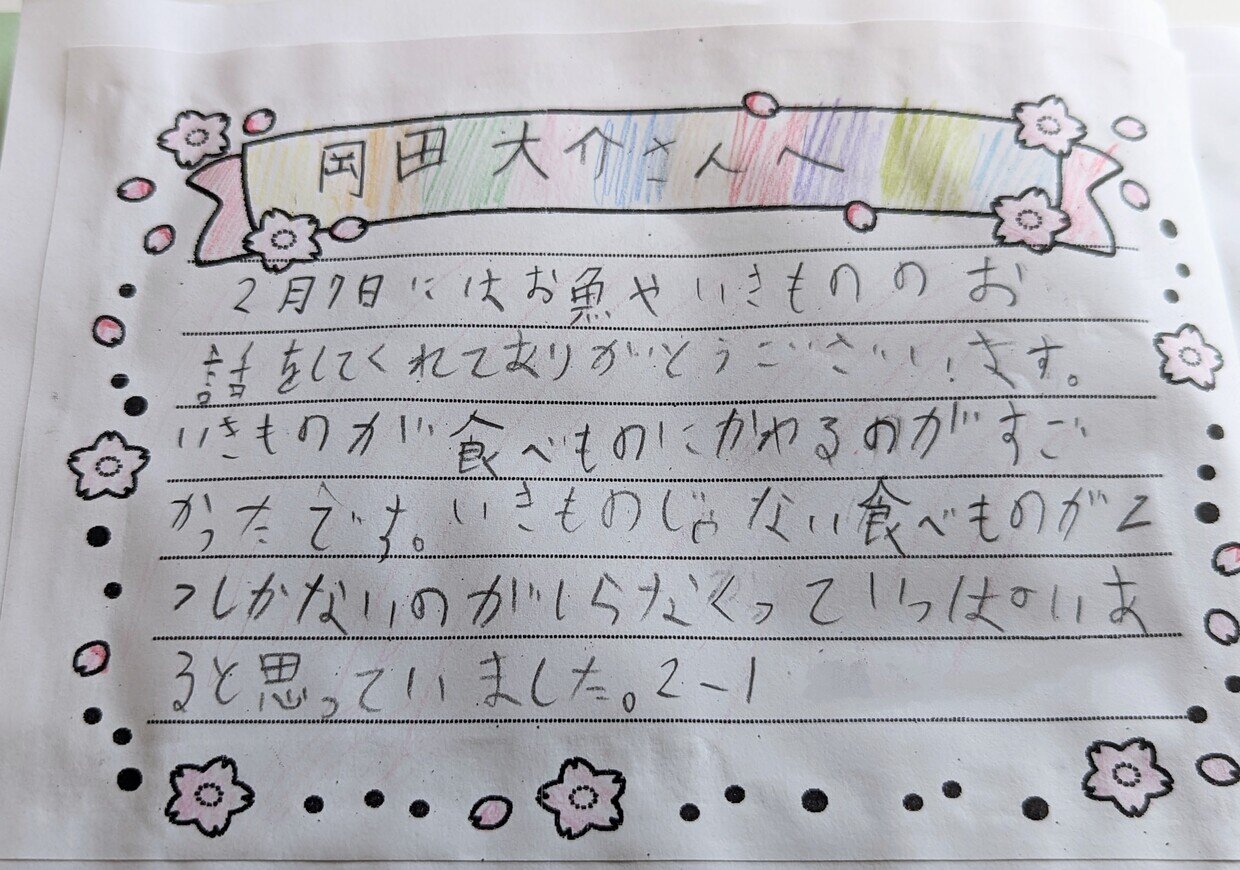 岡田 大介さんへ
2月7日にはお魚やいきもののお
話をしてくれてありがとうございます。
いきものが食べものにかわるのがすご
かったです。いきものじゃない食べものが2
つしかないのがしらなくっていっぱいあ
ると思っていました。2-1